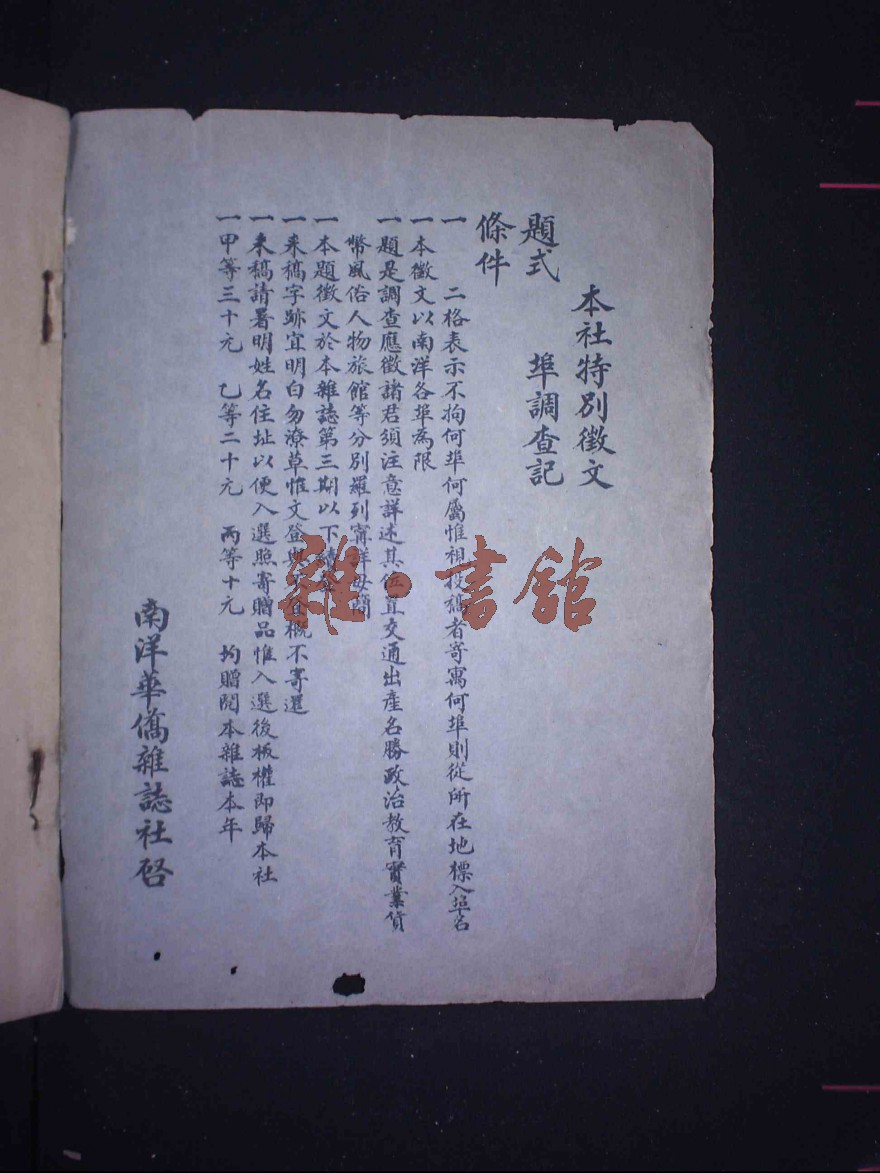 本社特別徵文
題式　埠調查記
條件
一　二格表示不拘何埠何屬惟視投稿者寄寓何埠則從所在地標入埠名
一本徵文以南洋各埠為限
一題是調查應徵諸君須注意詳述其位置交通出產名勝政治教育實業貨
幣風俗人物旅館等分別羅列寗詳毋簡
一本題徵文於本雜誌第三期以下
一來稿字跡宜明白勿潦草惟文登與概不寄還
一來稿請署明姓名住址以便入選照寄贈品惟入選後板權即歸本社
一甲等三十元　乙等二十元　丙等十元　均贈閱本雜誌本年
南洋華僑雜誌社啓
雜·書館